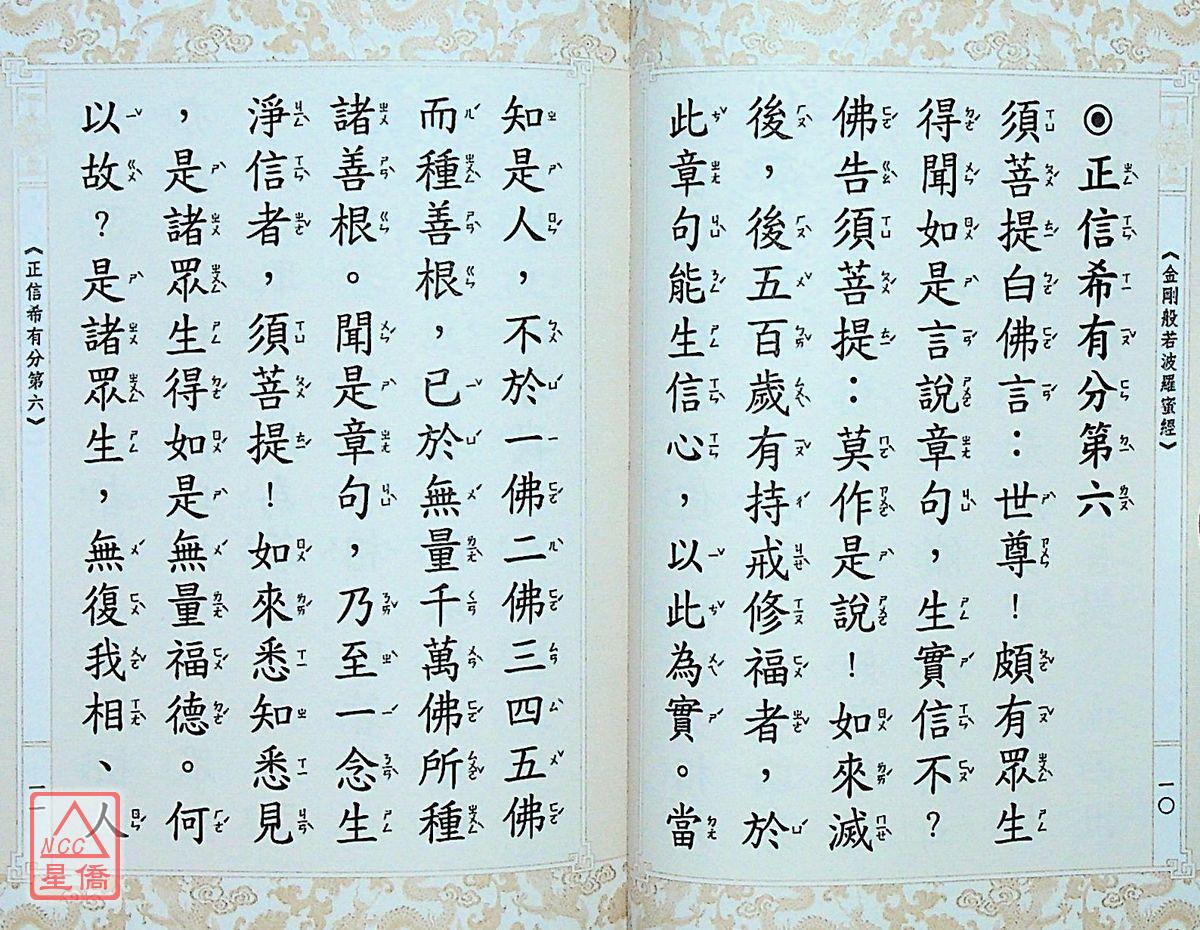 《金剛般若波羅蜜經》
一〇
◉正信希有分第六
須菩提白佛言：世尊！頗有眾生
得聞如是言說章句，生實信不？
佛告須菩提：莫作是說！如來滅
後，後五百歲有持戒修福者，於
此章句能生信心，以此為實。當
知是人，不於一佛二佛三四五佛
而種善根，已於無量千萬佛所種
諸善根。聞是章句，乃至一念生
淨信者，須菩提！如來悉知悉見
，是諸眾生得如是無量福德。何
以故？是諸眾生，無復我相、人
《正信希有分第六》
一一
NCC
星僑